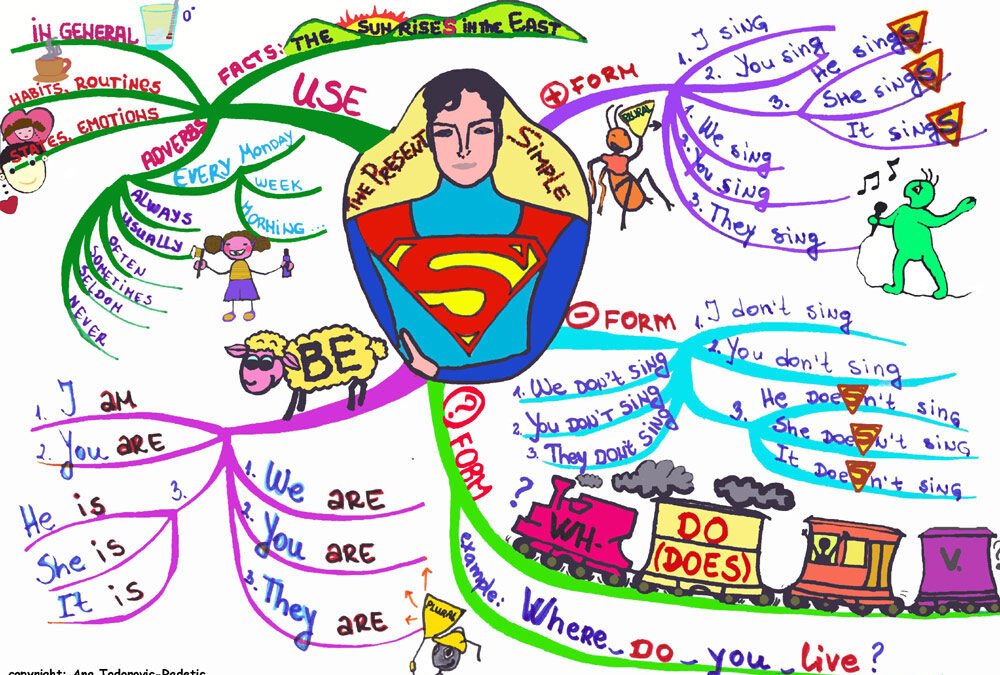 IN GENERAL
HABITS, ROUTINES
STATES, EMOTIONS
FACTS: THE SUN RISES in the EAST
USE
ADVERBS
EVERY Monday
WEEK
MORNING...
ALWAYS
USUALLY
OFTEN
SOMETIMES
SELDOM
NEVER
THE PRESENT SIMPLE
S
+ FORM
1. I SING
2. You sing
3. He singS
She singS
It singS
PLURAL
1. We sing
2. You sing
3. They sing
- FORM
1. I don't sing
2. You don't sing
3. He DoeSn't sing
She DoeSn't sing
It DoeSn't sing
1. We DON'T SING
2. You DON'T SING
3. They DON'T SING
BE
1. I AM
2. You ARE
3. He is
She is
It is
1. We ARE
2. You ARE
3. They ARE
PLURAL
? FORM
?
WH-
DO
(DOES)
V.
?
example: Where_DO_you_Live?
copyright: Ana